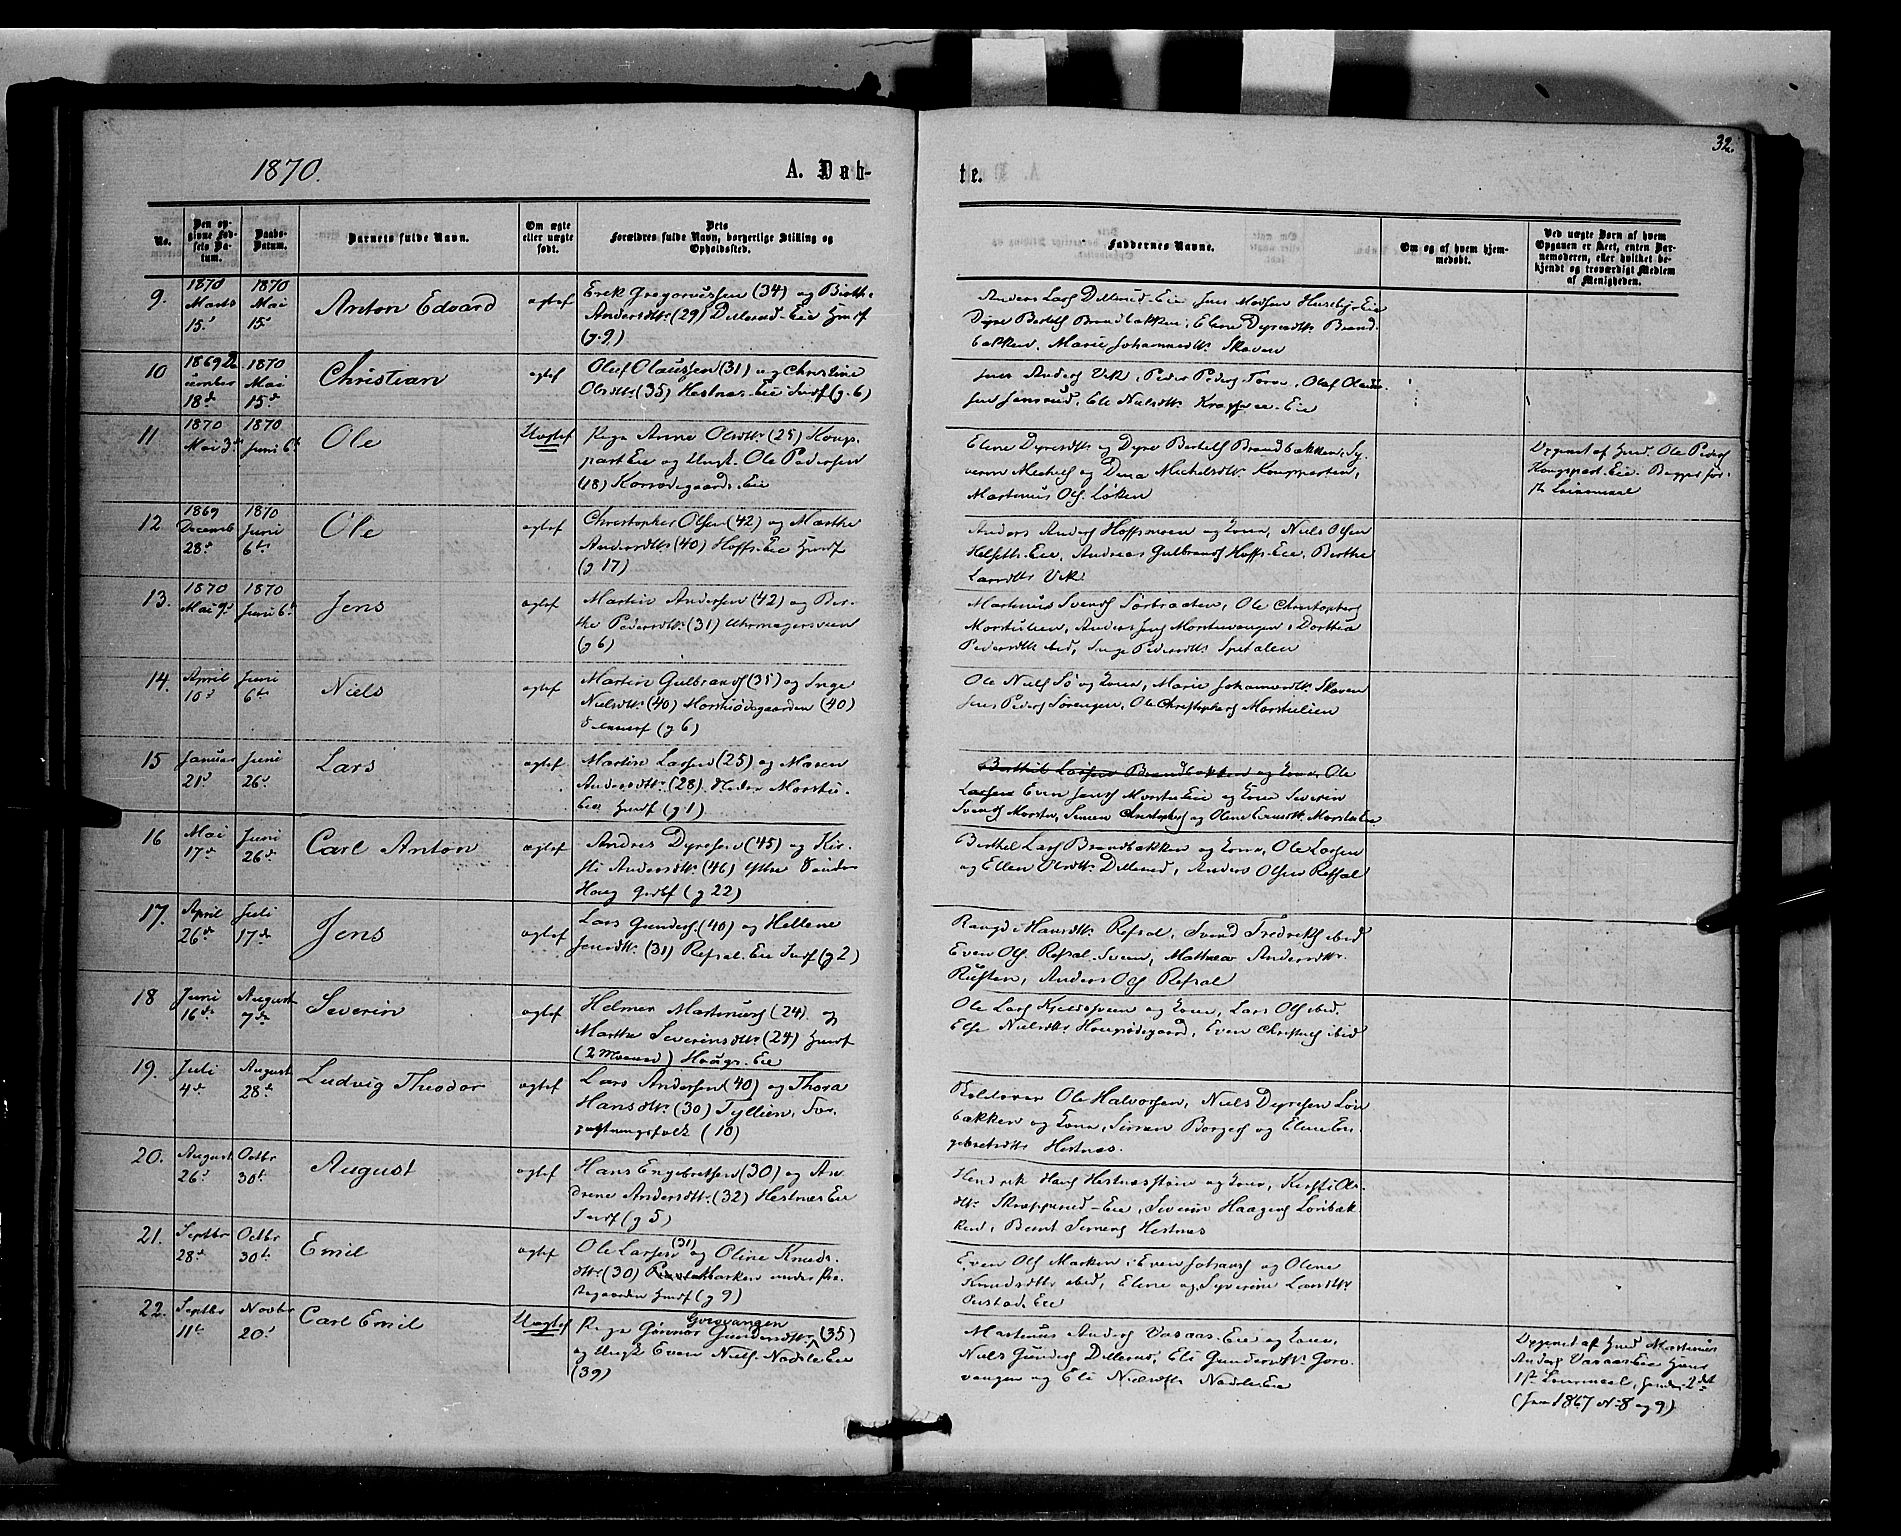 32.
1870.
A. Døb-
te.
No.
Den op-
givne Fød-
sels Da-
tum.
Daabs-
Datum.
Barnets fulde Navn.
Om ægte
eller uægte
født.
Dets
Forældres fulde Navn, borgerlige Stilling og
Opholdssted.
Faddernes Navne.
Om og af hvem hjem-
medøbt.
Ved uægte Børn af hvem
Opgaven er skeet, enten Bar-
nemoderen, eller hvilket be-
kjendt og troværdigt Medlem
af Menigheden.
9.
1870
Marts
15.
1870
Mai
15
Anton Edvard
ægtef
Erek Gregoriussen (34) og Birthe
Andersdtr (29) Dillerud-Eie Husf
(g. 9)
Anders Lars Dillerud-Eie Jens Madsen Huseby-Eie
Dyre Bertels Brandbakken, Elene Dyresdtr Brand-
bakken. Marie Johannesdtr Skoven
10
1869 De-
cember
18d
1870
Mai
15d
Christian
ægtef
Oluf Olaussen (31) og Christine
Olsdtr (35) Hestnes-Eie Indf (g. 6)
Jens Anders Vik, Peder Peders
Eli Nielsdtr
11
1870
Mai 3d
1870
Juni 6t
Ole
Uægtef
Pige Anne Olsdtr (25) Kongs-
part Eie og Ungk. Ole Pedersen
(18) Korsødegaards-Eie
Elene Dyresdtr og Dyre Bertels Brandbakken, Sy-
verin Michels og Dina Michelsdtr Kongsparten,
Martinus Ols Løken
Opgivet af Husm. Ole Peders
Kongspart-Eie. Begges før-
ste Leiermaal
12
1869
Decemb
28d
1870
Juni
6te
Ole
ægtef
Christopher Olsen (42) og Marthe
Andersdtr (40) Hoffs-Eie Husf
(g 17)
Anders Anders Hoffsveen og Kone, Niels Olsen
Helseths-Eie, Andreas Gulbrands Hoffs-Eie, Berthe
Larsdtr Vik
13.
1870
Mai 9d
1870
Juni 6t
Jens
ægtef
Martin Andersen (42) og Ber-
the Pedersdtr (31) Uhrmagersveen
(g 6)
Martinus Svends Sørbraaten, Ole Christophers
Morstulien, Anders Jens Morstuvangen, Dorthea
Pedersdtr ibid, Inge Pedersdtr Spitalen
14.
April
10d
Juni
6te
Niels
ægtef
Martin Gulbrands (35) og Inge
Nielsdtr (40) Morstuødegaarden (40)
(g 6)
Ole Niels Sø og Kone, Marie Johannesdtr Skoven
Jens Peders Sørengen, Ole Christophers Morstulien
15
Januar
21d
Juni
26d
Lars
ægtef
Martin Larsen (25) og Maren
Andersdtr (28) Nedre Morstu-
Eie Husf (g 1)
Berthel Larsen Brandbakken og Kone, Ole
Larsen Even Jens Morstu Eie og Kone Severin
Svends Morstu, Simen Christophers og Olene Evensdtr Morstu Eie
16
Mai
17de
Juni
26de
Carl Anton
ægtef
Andres Dyresen (45) og Kir-
sti Andersdtr (46) Østre Sønder
Houg Grdf (g 22)
Berthel Lars Brandbakken og Kone, Ole Larsen
og Ellen Olsdtr Dillerud, Anders Olsen Refsal
17.
April
26de
Juli
17de
Jens
ægtef
Lars Gunders (40) og Hellene
Jensdtr (31) Refsal-Eie Indf (g 2)
Rangdi Hansdtr Refsal, Svend Fredriks ibid
Even Ols Refsal-Sveen, Mathea Andersdtr
Rusten, Anders Ols Refsal
18
Juni
16de
August
7de
Severin
ægtef
Helmer Martinus (24) og
Marthe Severinsdtr (24) Husf
(2 Maaned) Haugs-Eie
Ole Lars Kjeldsveen og Kone, Lars Ols ibid.
Else Nielsdtr Hougsødegaard, Even Christens ibid
19.
Juli
4de
August
28de
Ludvig Theodor
ægtef
Lars Andersen (40) og Thora
Hansdtr (30) Tyllien, For-
pagtningsfolk (10)
Ole Halvorsen, Niels Dyresen Løn-
bakken og Kone, Simen Borges og Eline En-
gebretsdtr Hestnes.
20.
August
26d
Octbr
30te
August
ægtef
Hans Engebretsen (30) og An-
drene Andersdtr (32) Hestnes Eie
Indf (g 5)
Hendrik Hans Hestnesstøen og Kone, Kirsti Ols-
dtr Skrappered-Eie, Severin Haagens Lønbak-
ken, Bernt Simens Hestnes
21.
Septbr
28de
Octbr
30te
Emil
ægtef
Ole Larsen (31) og Oline Knuds-
dtr (30) bakken under Præ-
stegaarden Husf (g 9)
Even Ols Marken, Even Johans og Olene
Knudsdtr ibid, Elene og Syverine Larsdtr
Eie
22.
Septbr
11te
Novbr
20d
Carl Emil
Uægtef
Gorovangen
Pige Gunnor Gundersdtr (35)
og Ungk Even Niels Nødsle Eie
(39)
Martinus Anders Vasaas-Eie og Kone,
Niels Gunders Dillerud, Eli Gundersdtr Goro-
vangen og Eli Nielsdtr Nødsle Eie
Opgivet af Husm Martinus
Anders Vasaas Eie Hans
1ste Leiermaal, hendes 2det
(Jvnf 1867 N. 8 og 9)